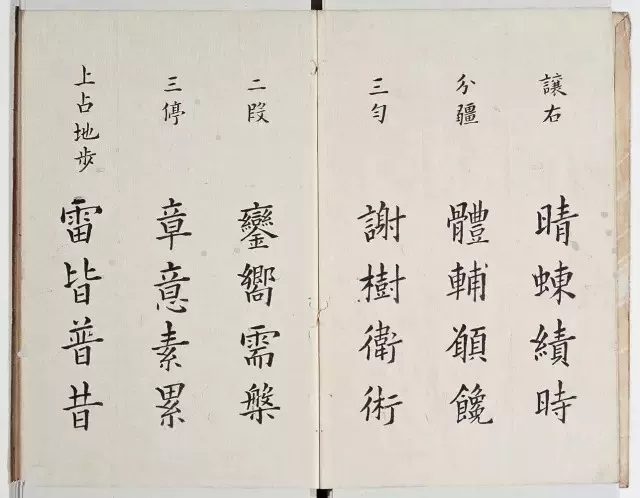 讓右 晴蝀績時
分疆 體輔願饞
三勻 謝樹衛術
二段 鑾嚮需槃
三停 章意素累
上占地步 雷皆普昔